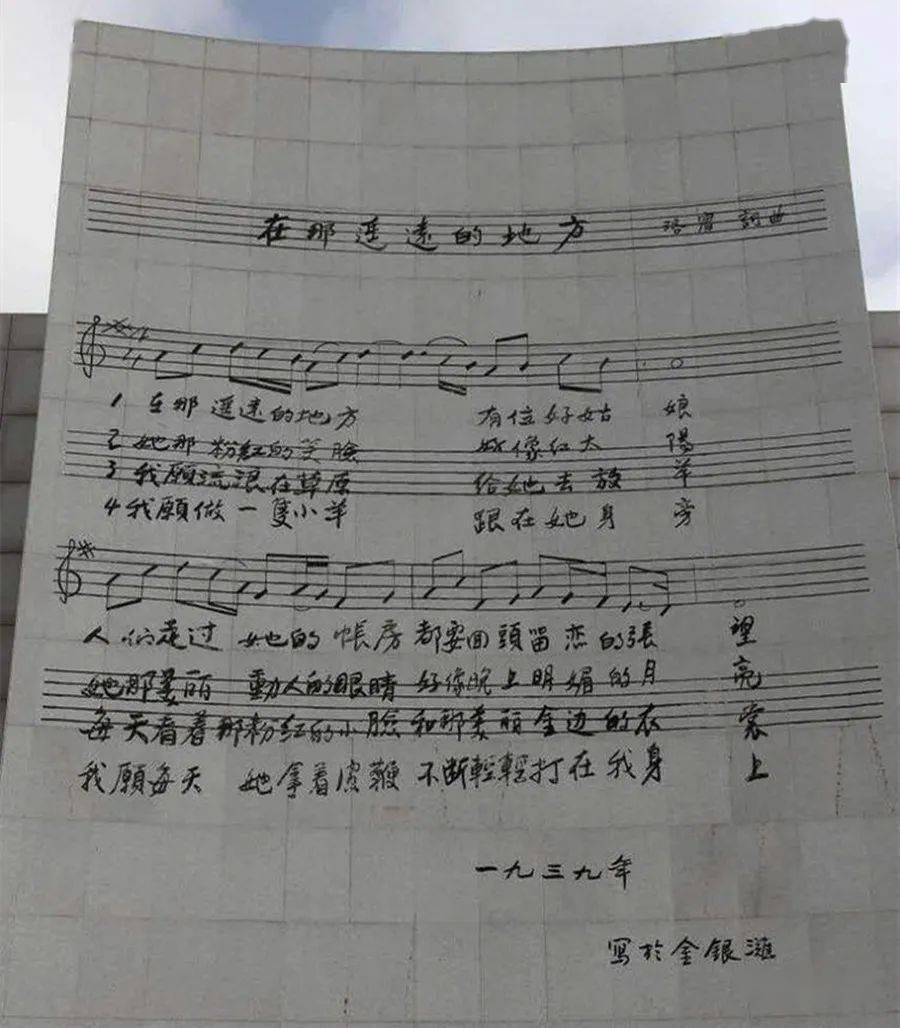 在那遥遠的地方 珞賓 詞曲
1 在那遥遠的地方 有位好姑娘
2 她那粉紅的笑臉 好像红太陽
3 我願流浪在草原 给她去放羊
4 我願做一隻小羊 跟在她身旁
人们走过 她的帳房都要回頭留恋的張望
她那美丽 動人的眼睛 好像晚上明媚的月亮
每天看着那粉红的小臉和那美丽金边的衣裳
我願每天 她拿着皮鞭 不断輕輕打在我身上
一九三九年
寫於金銀灘